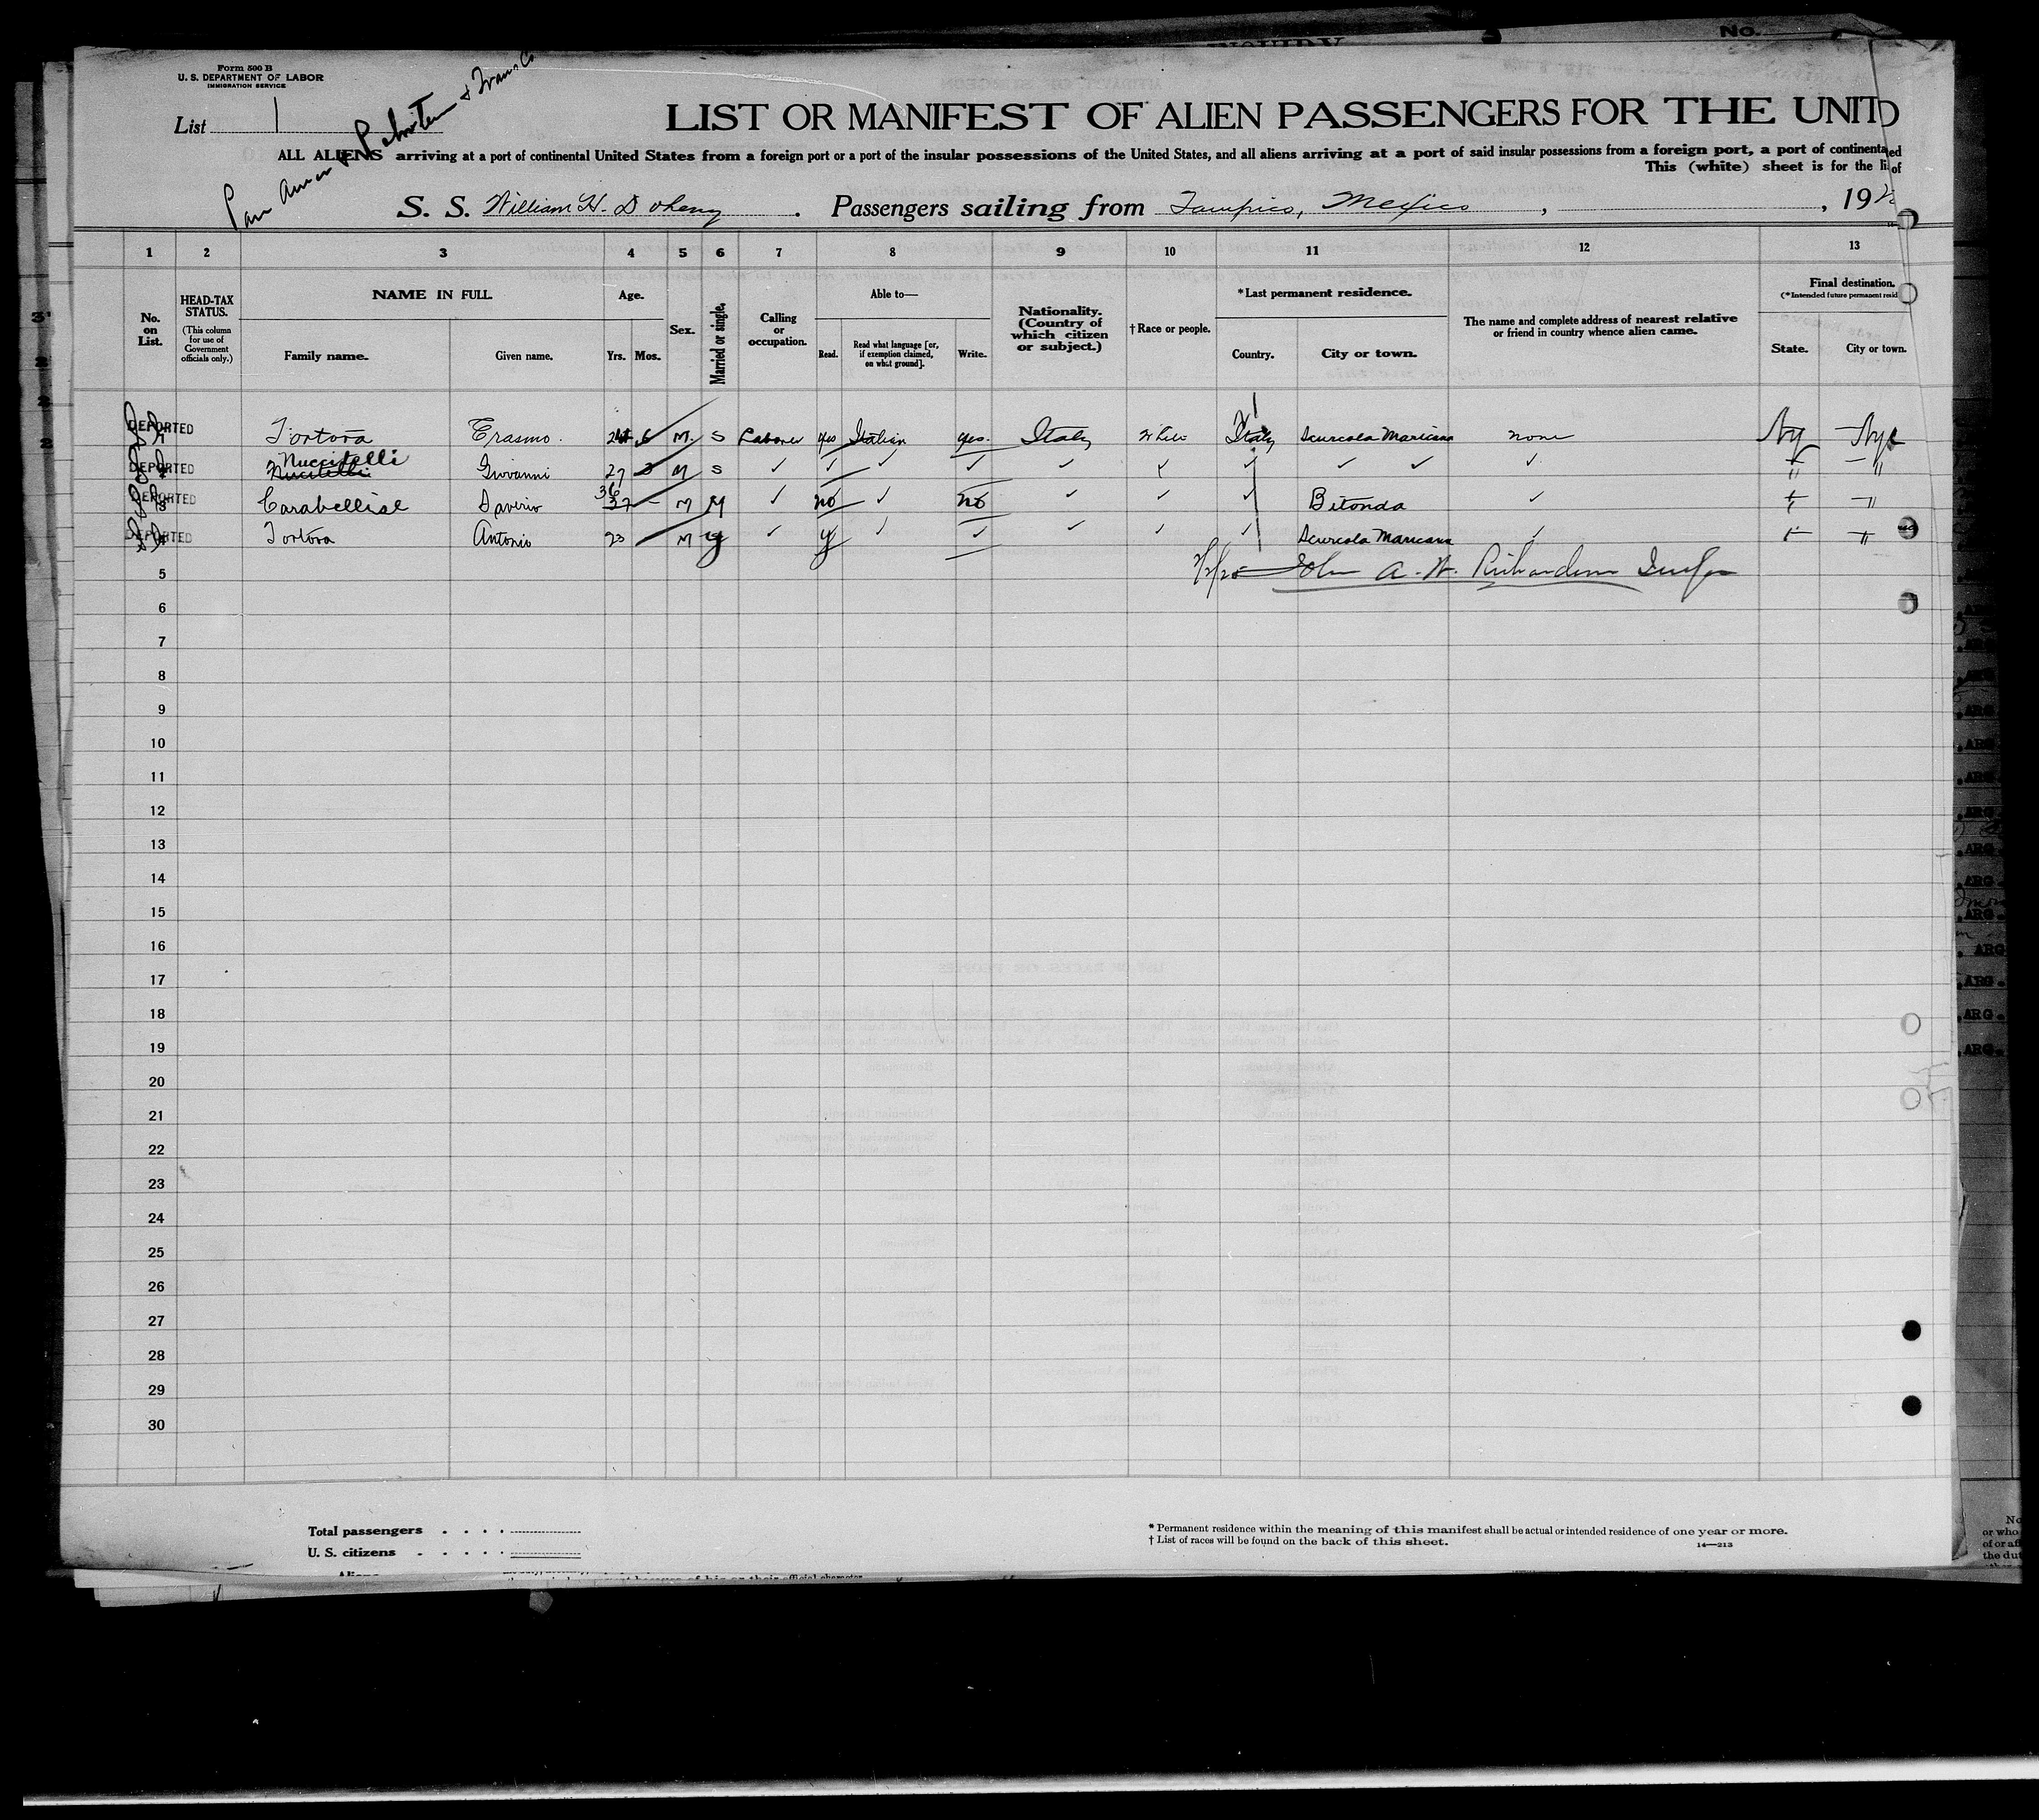 No.
Form 500 B
U. S. DEPARTMENT OF LABOR
IMMIGRATION SERVICE
List 1
LIST OR MANIFEST OF ALIEN PASSENGERS FOR THE UNIT D
ALL ALIENS arriving at a port of continental United States from a foreign port or a port of the insular possessions of the United States, and all aliens arriving at a port of said insular possessions from a foreign port, a port of continental
This (white) sheet is for the li
S. S. William H. Doheny . Passengers sailing from Tampico, Mexico , , 192
1 2 3 4 5 6 7 8 9 10 11 12 13
No. on List.
HEAD-TAX STATUS.
(This column for use of Government officials only.)
NAME IN FULL.
Family name. Given name.
Age.
Yrs. Mos.
Sex.
Married or single.
Calling or occupation.
Able to—
Read. Read what language [or, if exemption claimed, on what ground]. Write.
Nationality. (Country of which citizen or subject.)
† Race or people.
*Last permanent residence.
Country. City or town.
The name and complete address of nearest relative or friend in country whence alien came.
Final destination.
(*Intended future permanent resid
State. City or town.
DEPORTED 1 Tortora Erasmo. M. S Laborer yes Italian yes. Italy White Italy Scurcola Maricana none Ny Nyc
Nuccitelli
DEPORTED Nucitelli Giovanni 27 M S ✓ ✓ ✓ ✓ ✓ ✓ ✓ ✓ ✓ ✓ "
36
DEPORTED 3 Carabellise Saverio 37 - M M ✓ no ✓ no ✓ ✓ ✓ Bitonda ✓ "
DEPORTED 4 Tortora Antonio 23 M y ✓ y ✓ ✓ ✓ ✓ ✓ Scurcola Maricana ✓ "
5 John A. W. Richardson
6
7
8
9
10
11
12
13
14
15
16
17
18
19
20
21
22
23
24
25
26
27
28
29
30
Total passengers . . . .
U. S. citizens . . . . .
* Permanent residence within the meaning of this manifest shall be actual or intended residence of one year or more.
† List of races will be found on the back of this sheet.
14—213